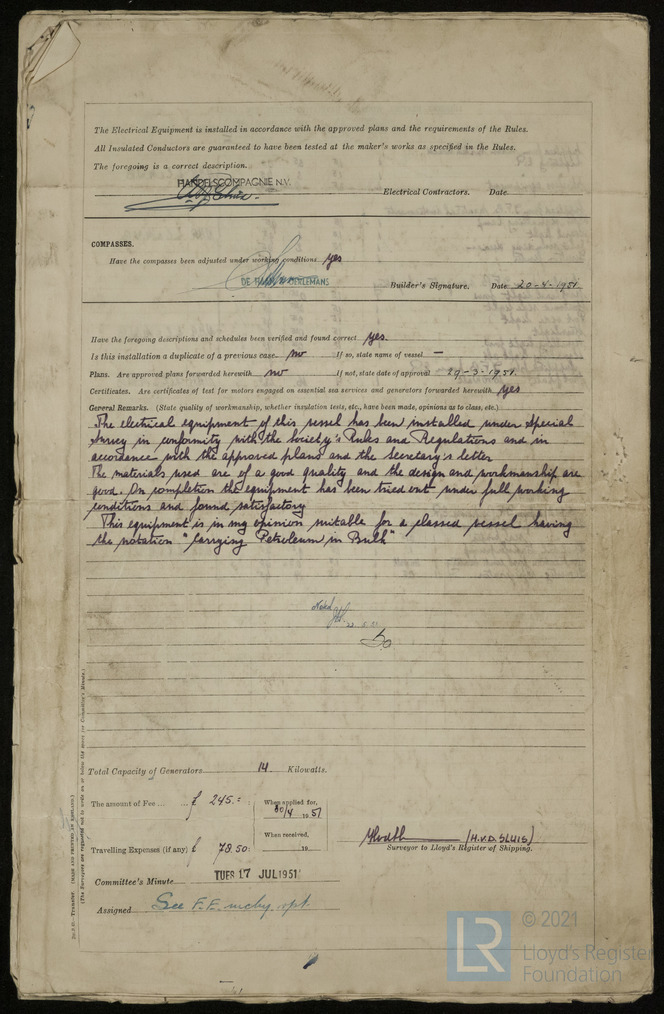 The Electrical Equipment is installed in accordance with the approved plans and the requirements of the Rules.
All Insulated Conductors are guaranteed to have been tested at the maker's works as specified in the Rules.
The foregoing is a correct description.
HANDELSCOMPAGNIE N.V.
Electrical Contractors. Date
COMPASSES.
Have the compasses been adjusted under working conditions yes
DE HAAN & OERLEMANS Builder's Signature. Date 20-4-1951
Have the foregoing descriptions and schedules been verified and found correct yes.
Is this installation a duplicate of a previous case. no If so, state name of vessel —
Plans. Are approved plans forwarded herewith no If not, state date of approval 29-3-1951.
Certificates. Are certificates of test for motors engaged on essential sea services and generators forwarded herewith yes
General Remarks. (State quality of workmanship, whether insulation tests, etc., have been made, opinions as to class, etc.)
The electrical equipment of this vessel has been installed under Special
Survey in conformity with the Society's Rules and Regulations and in
accordance with the approved plans and the Secretary's letter
The materials used are of a good quality and the design and workmanship are
good. On completion the equipment has been tried out under full working
conditions and found satisfactory
This equipment is in my opinion suitable for a classed vessel having
the notation "Carrying Petroleum in Bulk"
Noted
Total Capacity of Generators 14 Kilowatts.
The amount of Fee ... £ 245.=: When applied for, 30/4 1951
When received,
Travelling Expenses (if any) £ 78.50: 19
(H.V.D. SLUIS)
Surveyor to Lloyd's Register of Shipping.
Committee's Minute TUES 17 JUL 1951
Assigned See F.E. mchy. rpt.
(MADE AND PRINTED IN ENGLAND.)
(The Surveyors are requested not to write on or below the space for Committee's Minute.)
LR © 2021
Lloyd's Register
Foundation